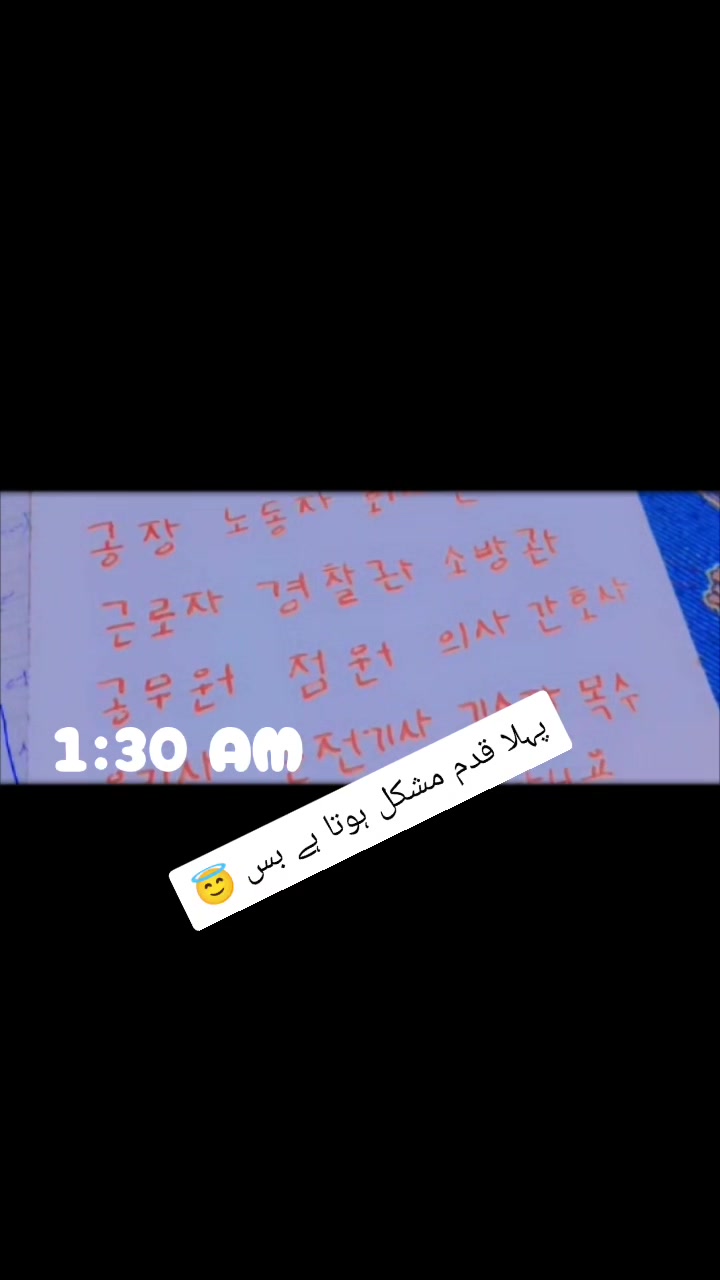 공장 노동자
근로자 경찰관 소방관
공무원 점원 의사 간호사
전기사 목수
1:30 AM
پہلا قدم مشکل ہوتا ہے بس 😇